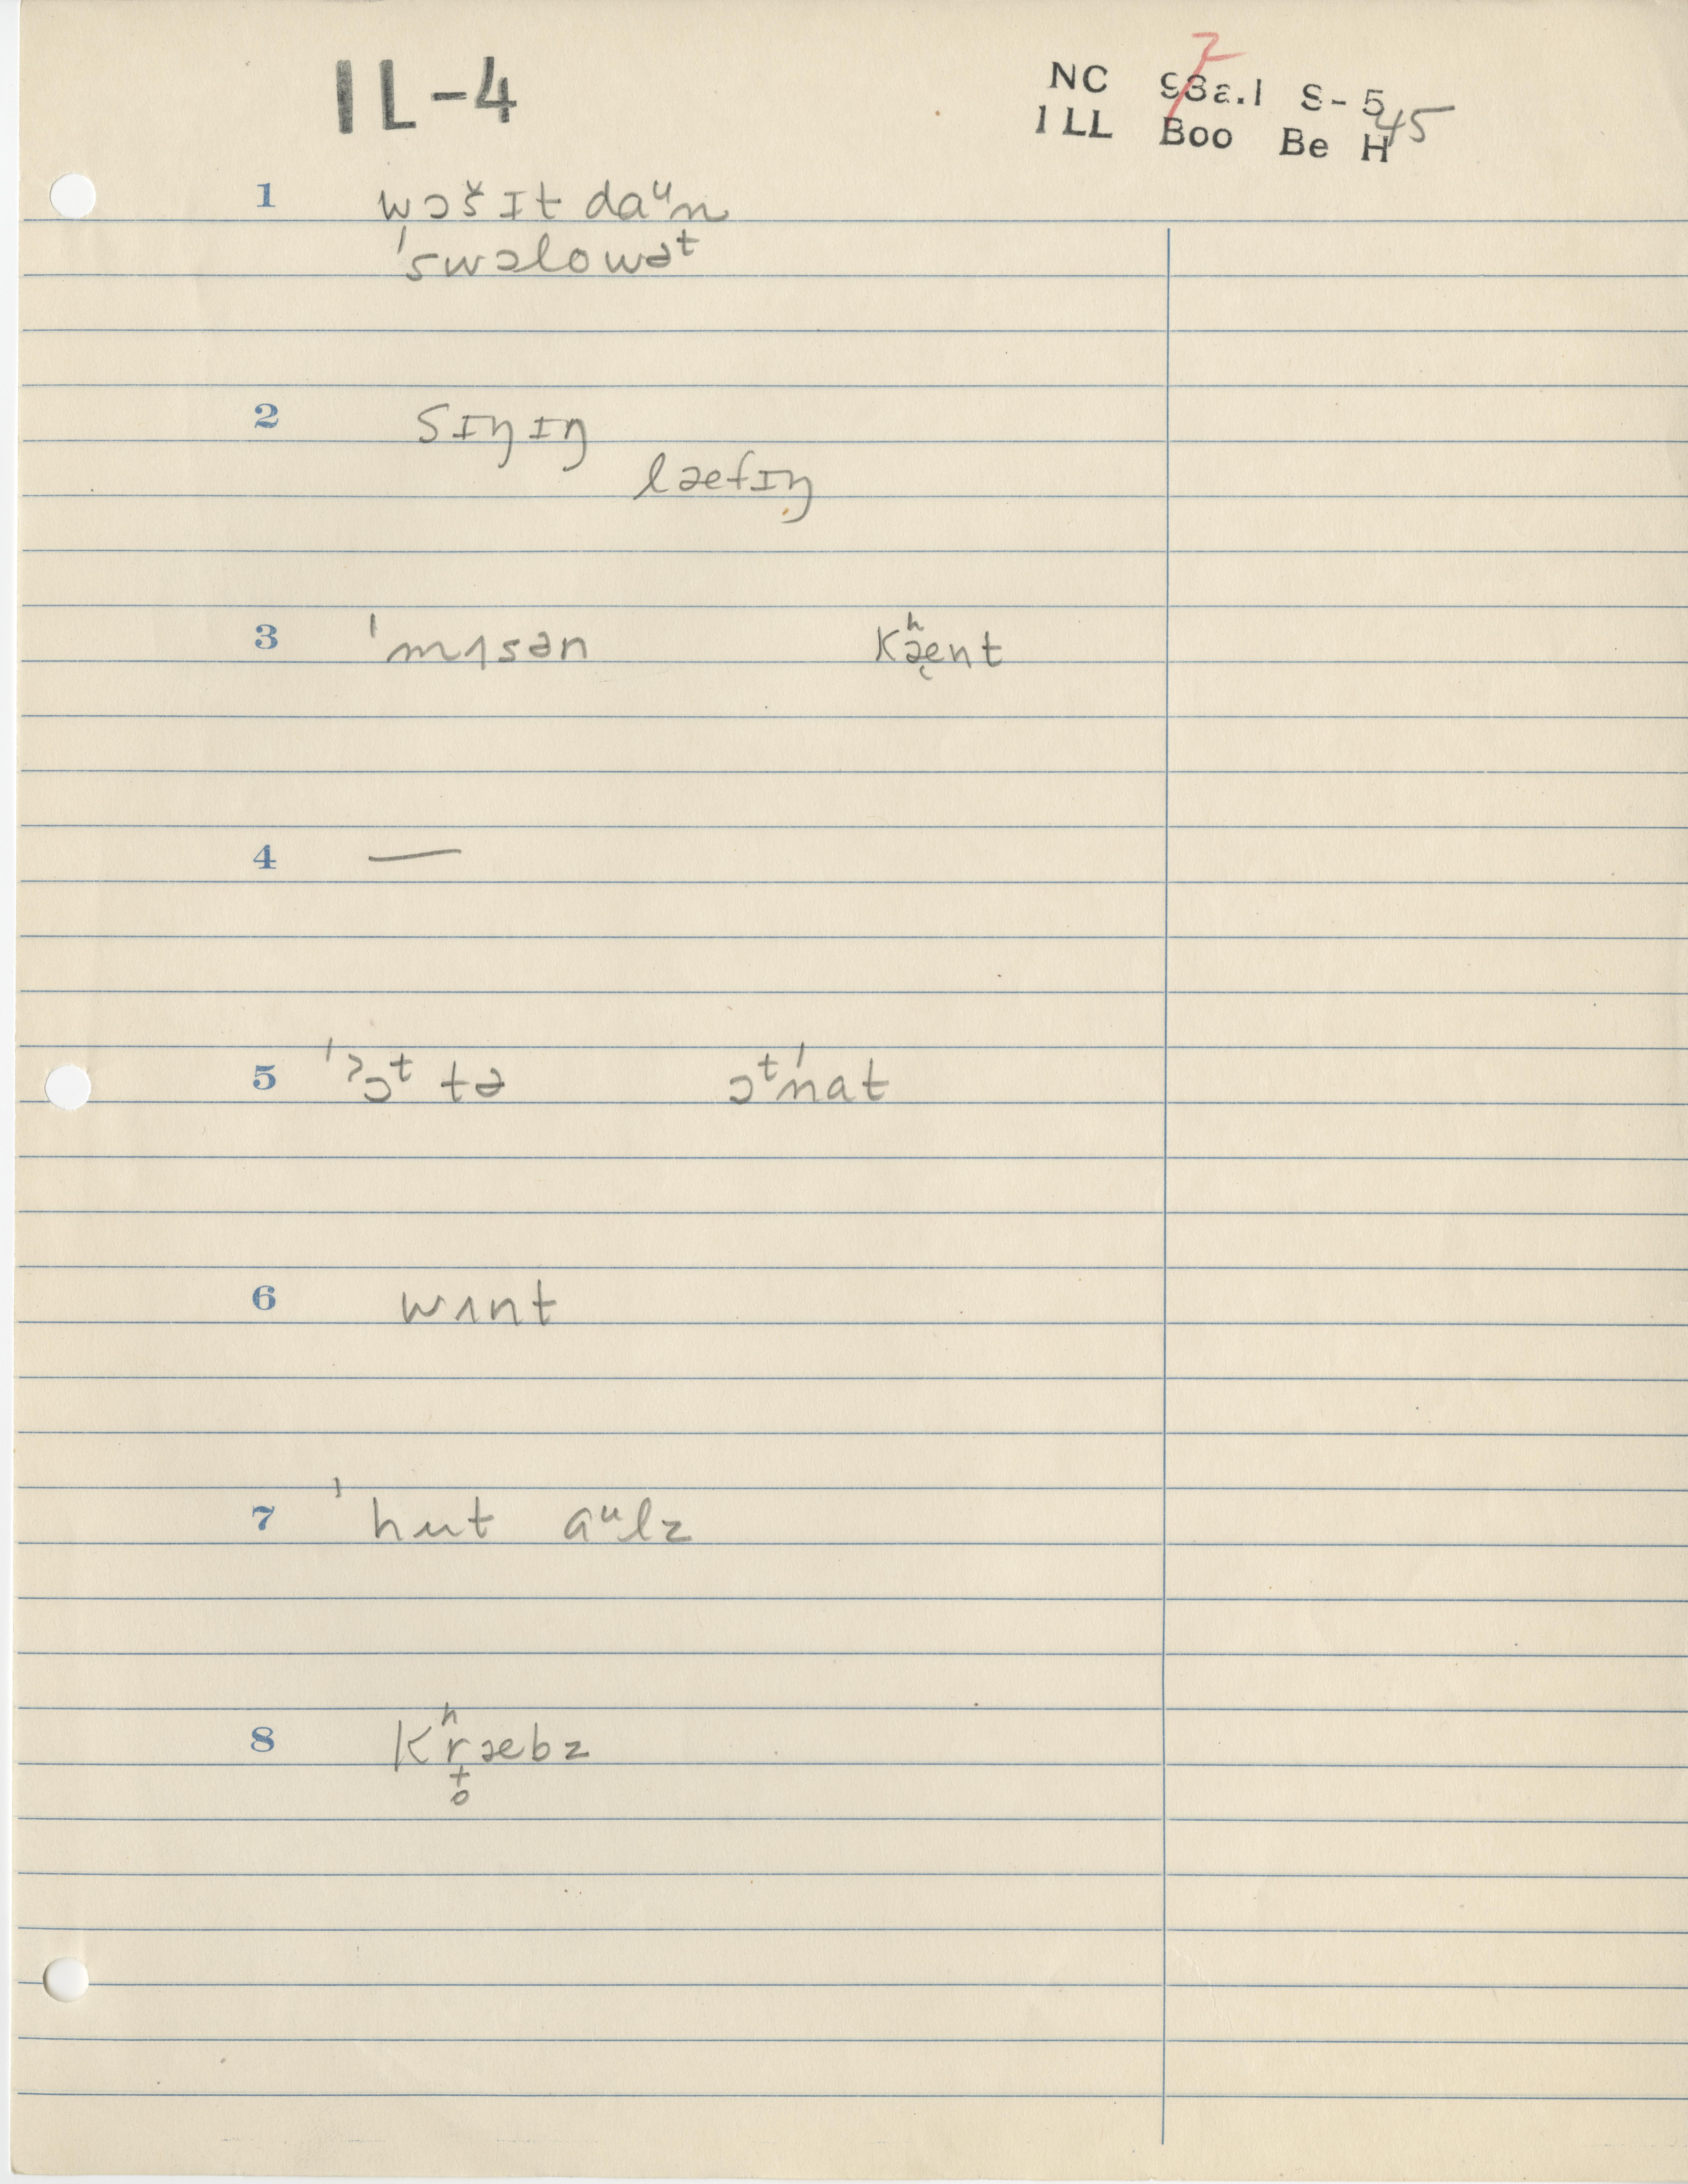 IL-4
NC 93a.1 S-5 45
7
ILL Boo Be H
1 wɔšɪt daᵘn
ˈswɔlowəᵗ
2 sɪŋɪŋ
læfɪŋ
3 ˈmɪsən kʰæ̨nt
4 —
5 ˈʔɔᵗ tə ɔᵗˈnat
6 wɪnt
7 ˈhut aᵘlz
8 kʰr̥̟æbz